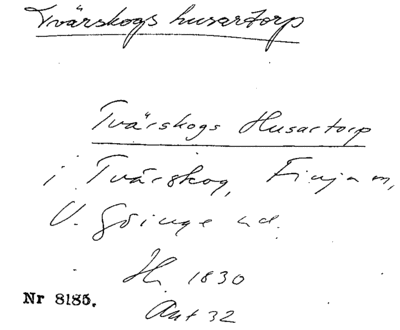 Tvärskogs husartorp
Tvärskogs Husartorp
i Tvärskog, Finja sn,
V. Göinge hd.
Hi 1830
Ant 32
Nr 8185.